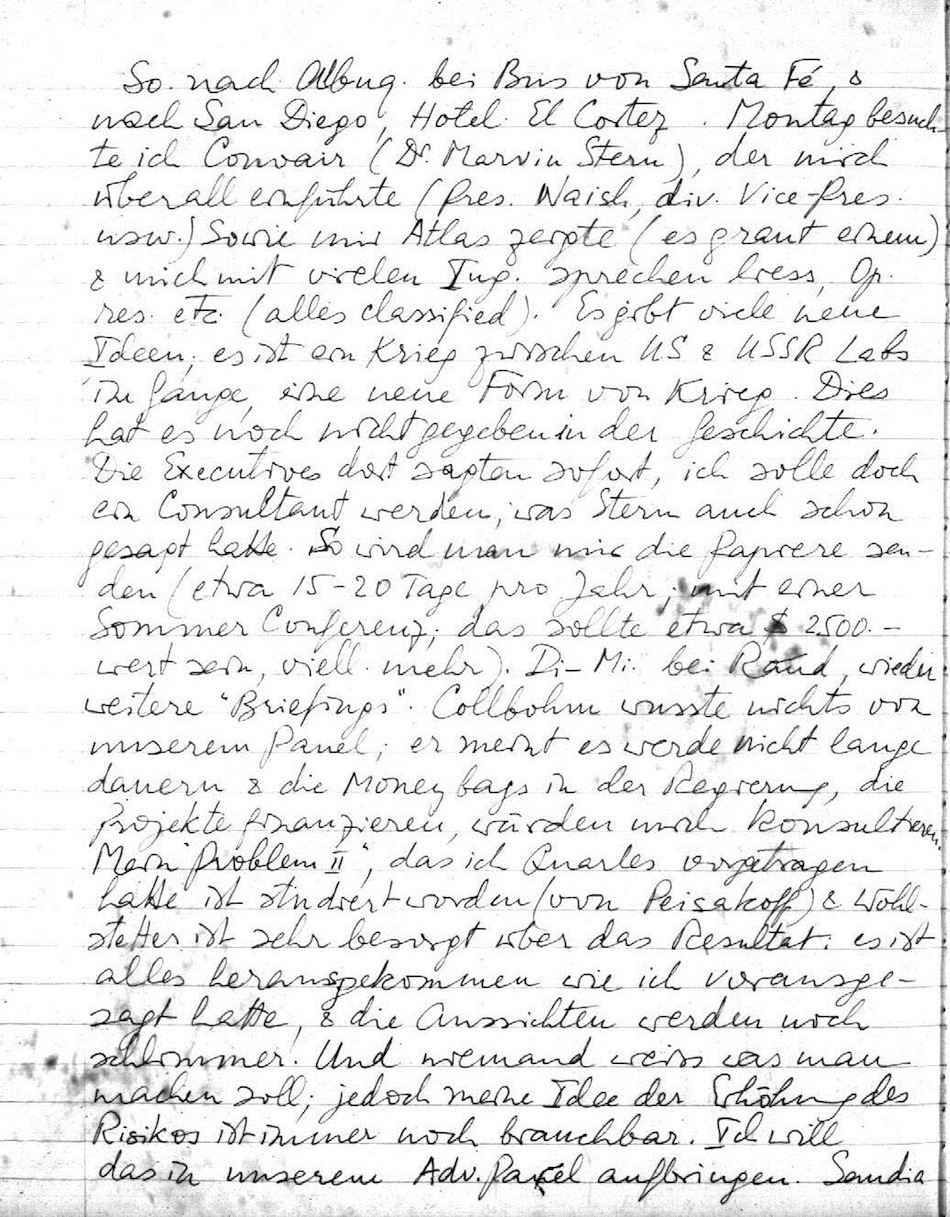 So nach Albuq. bei Bus von Santa Fé, &
nach San Diego, Hotel El Cortez. Montag besuch-
te ich Convair (Dr. Marvin Stern), der mich
überall einführte (Pres. Naish, div. Vice-Pres.
usw.) sowie mir Atlas zeigte (es graut einem)
& mich mit vielen Ing. sprechen liess, Op.
res. etc. (alles classified). Es gibt viele neue
Ideen; es ist ein Krieg zwischen US & USSR Labs
im Gange, eine neue Form von Krieg. Dies
hat es noch nicht gegeben in der Geschichte.
Die Executives dort sagten sofort, ich solle doch
ein Consultant werden, was Stern auch schon
gesagt hatte. So wird man mir die Papiere sen-
den (etwa 15-20 Tage pro Jahr, mit einer
Sommer Conferenz; das sollte etwa $ 2500.-
wert sein, viell. mehr). Di-Mi. bei Rand, wieder
weitere "Briefings". Collbohm wusste nichts von
unserem Panel; er meint es werde nicht lange
dauern & die Moneybags in der Regierung, die
Projekte finanzieren, würden mich konsultieren.
Mein "Problem II", das ich Quarles vorgetragen
hatte ist studiert worden (von Peisakoff) & Wohl-
stetter ist sehr besorgt über das Resultat: es ist
alles herausgekommen wie ich vorausge-
sagt hatte, & die Aussichten werden noch
schlimmer. Und niemand weiss was man
machen soll; jedoch meine Idee der Erhöhung des
Risikos ist immer noch brauchbar. Ich will
das in unserem Adv. Panel aufbringen. Sandia